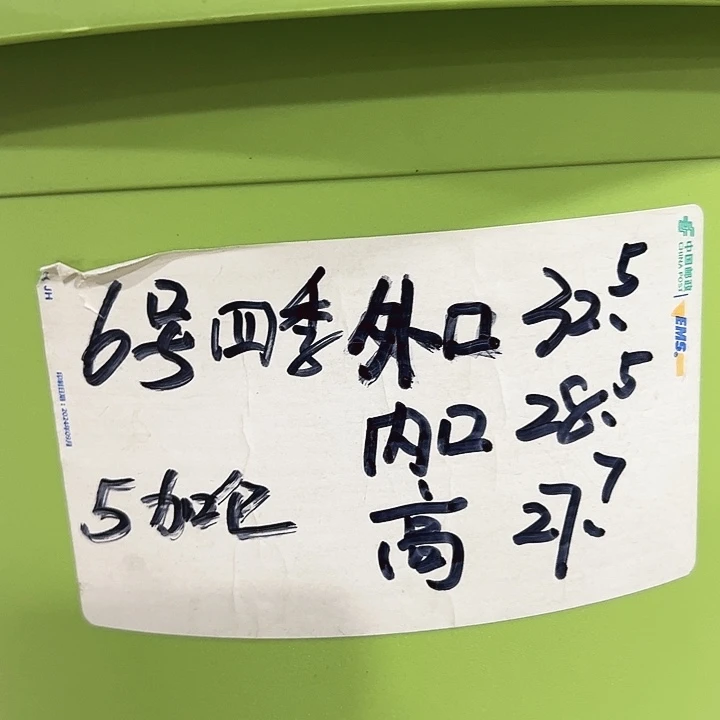 6号四季外口32.5
内口28.5
5加仑
高27.7
中国邮政
CHINA POST
EMS
JH